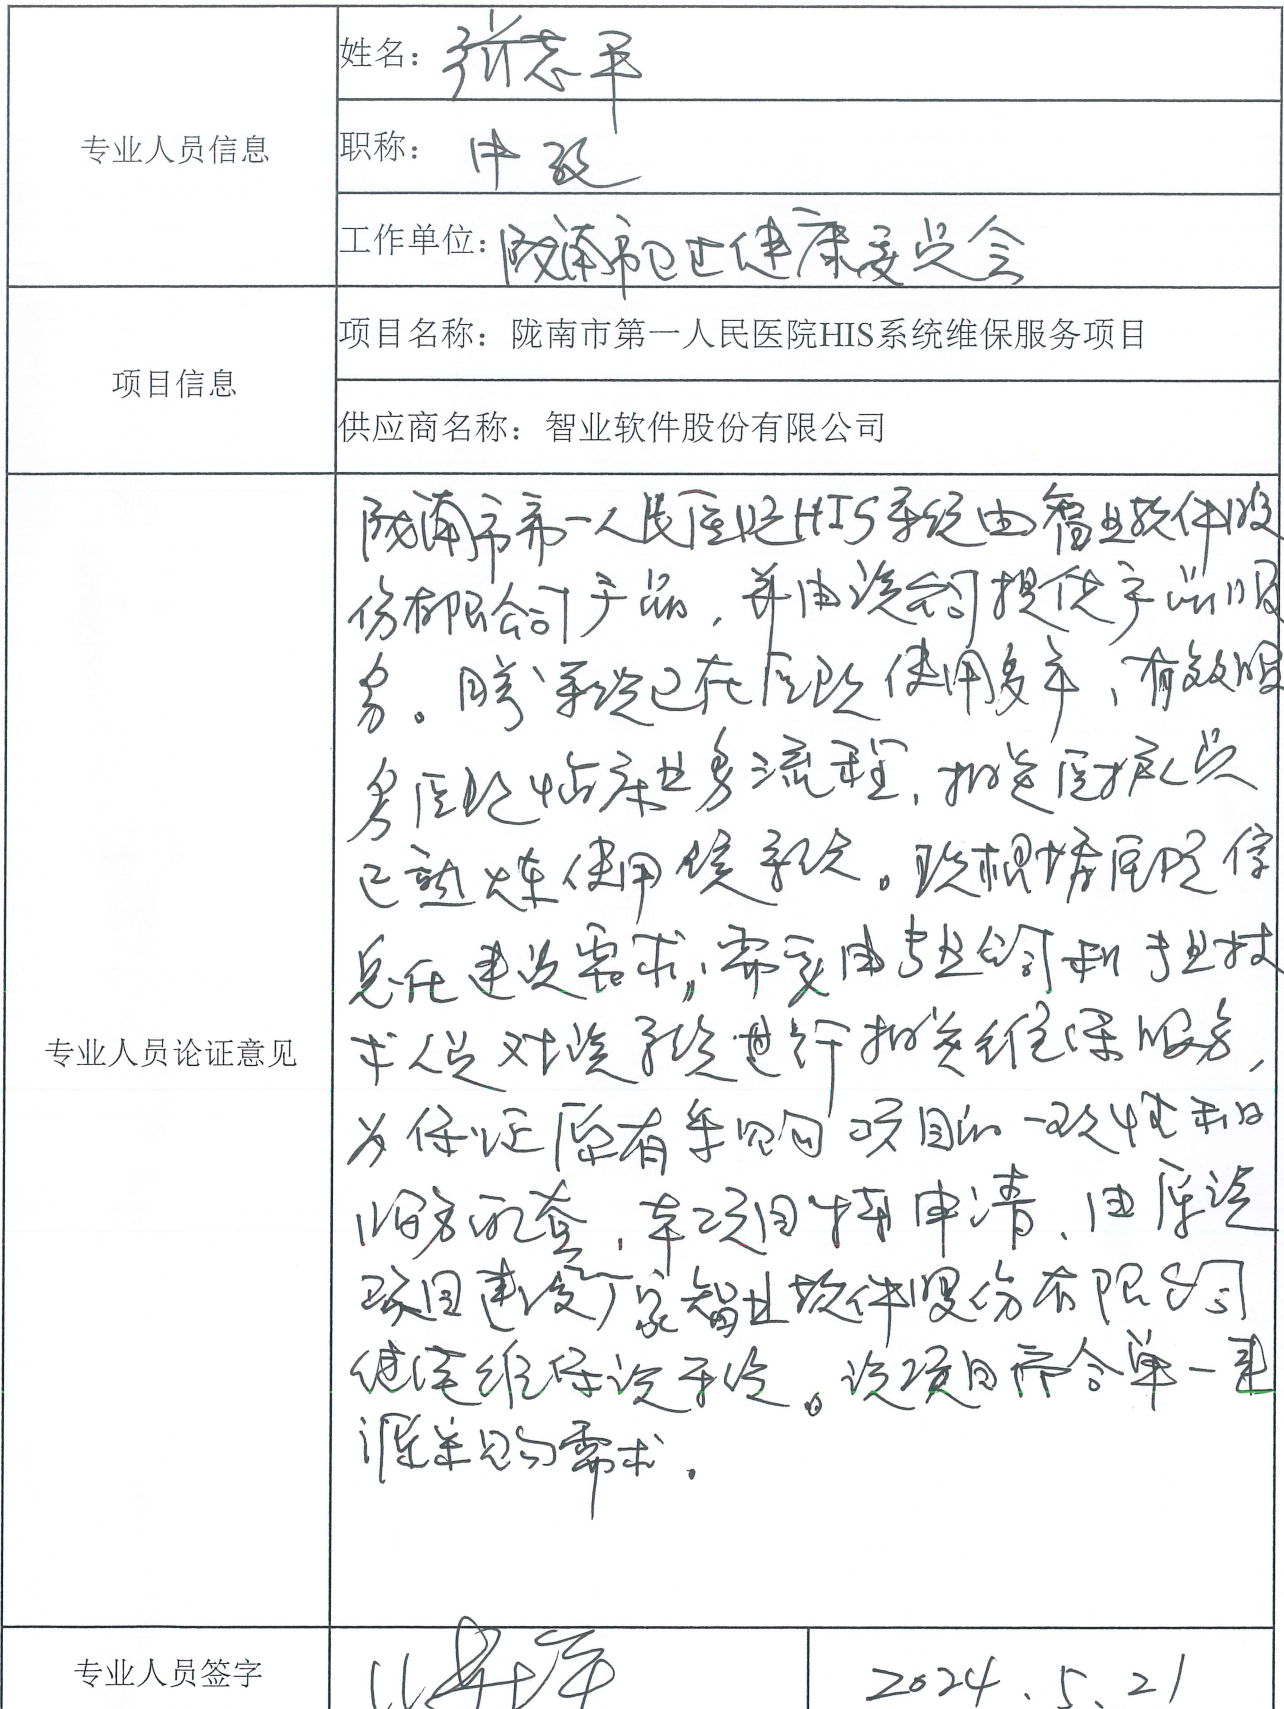 专业人员信息
姓名：张志平
职称：中级
工作单位：陇南市卫生健康委员会
项目信息
项目名称：陇南市第一人民医院HIS系统维保服务项目
供应商名称：智业软件股份有限公司
专业人员论证意见
陇南市第一人民医院HIS系统由智业软件股
份有限公司产品，并由该公司提供产品服
务。系统已在医院使用多年，有效服
务医院临床业务流程，相关医护人员
已熟练使用该系统。现根据医院信
息化建设需求，需要由专业公司和专业技
术人员对该系统进行相关维保服务，
为保证原有采购项目的一致性和
服务配套，本项目特申请，由原该
项目建设厂家智业软件股份有限公司
继续维保该系统。该项目符合单一来
源采购需求．
专业人员签字
2024．5．21